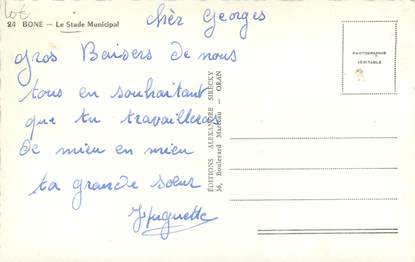 10€
24 BONE — Le Stade Municipal
chèr Georges
gros Baisers de nous
tous en souhaitant
que tu travailleras
de mieu en mieu
ta grande sœur
Huguette
PHOTOGRAPHIE
VÉRITABLE
ÉDITIONS ALEXANDRE SIRECKY
56, Boulevard Marceau — ORAN